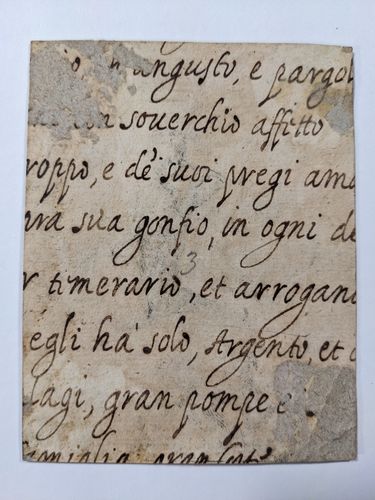 angusto, e pargol
souerchio affitto
roppo, e de suoi pregi ama
ura sua gonfio, in ogni de
3
r timerario, et arrogan
egli ha solo, Argento, et
lagi, gran pompe e
famiglia gran